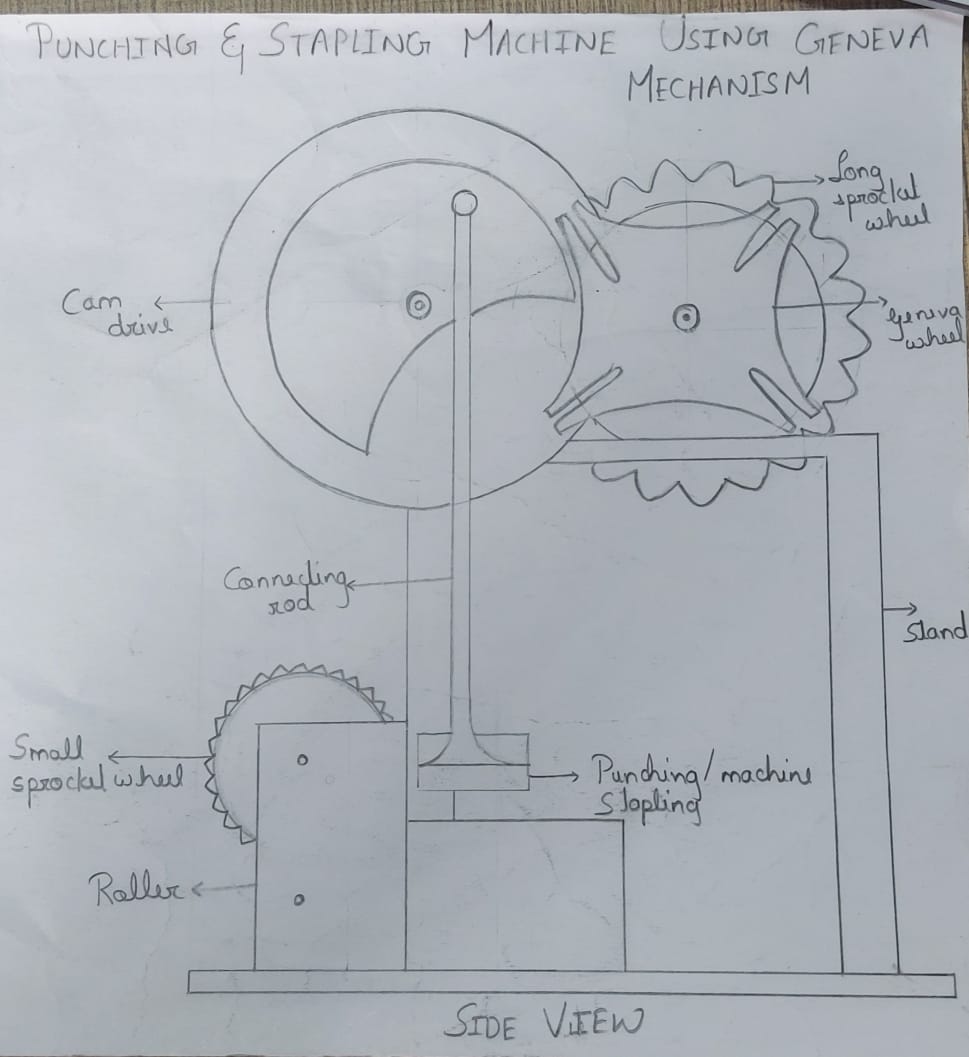 PUNCHING & STAPLING MACHINE USING GENEVA
MECHANISM
Long
sprocket
wheel
Cam
drive
Geneva
wheel
Connecting
rod
Stand
Small
sprocket wheel
Punching/machine
Stapling
Roller
SIDE VIEW